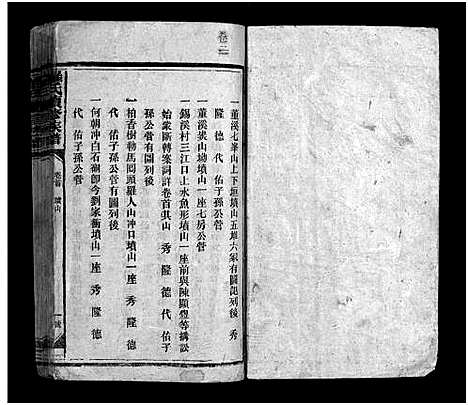 卷二
一董溪七峯山上下垣墳山五堆六家有圖記列後 秀
隆 德 代 佑子孫公管
一董溪炭山坳墳山一座七房公管
一錫溪村三江口上水魚形墳山一座前與陳顯
等搆訟
始末斷轉案詞詳卷首其山 秀 隆 德 代 佑子
孫公管有圖列後
一柏香樹勒馬囘頭羅人山冲口墳山一座 秀 隆 德
代 佑子孫公管有圖列後
一何朝冲白石
卽今劉家衝墳山一座 秀 隆 德
代 佑子孫公管
卷首 墳山